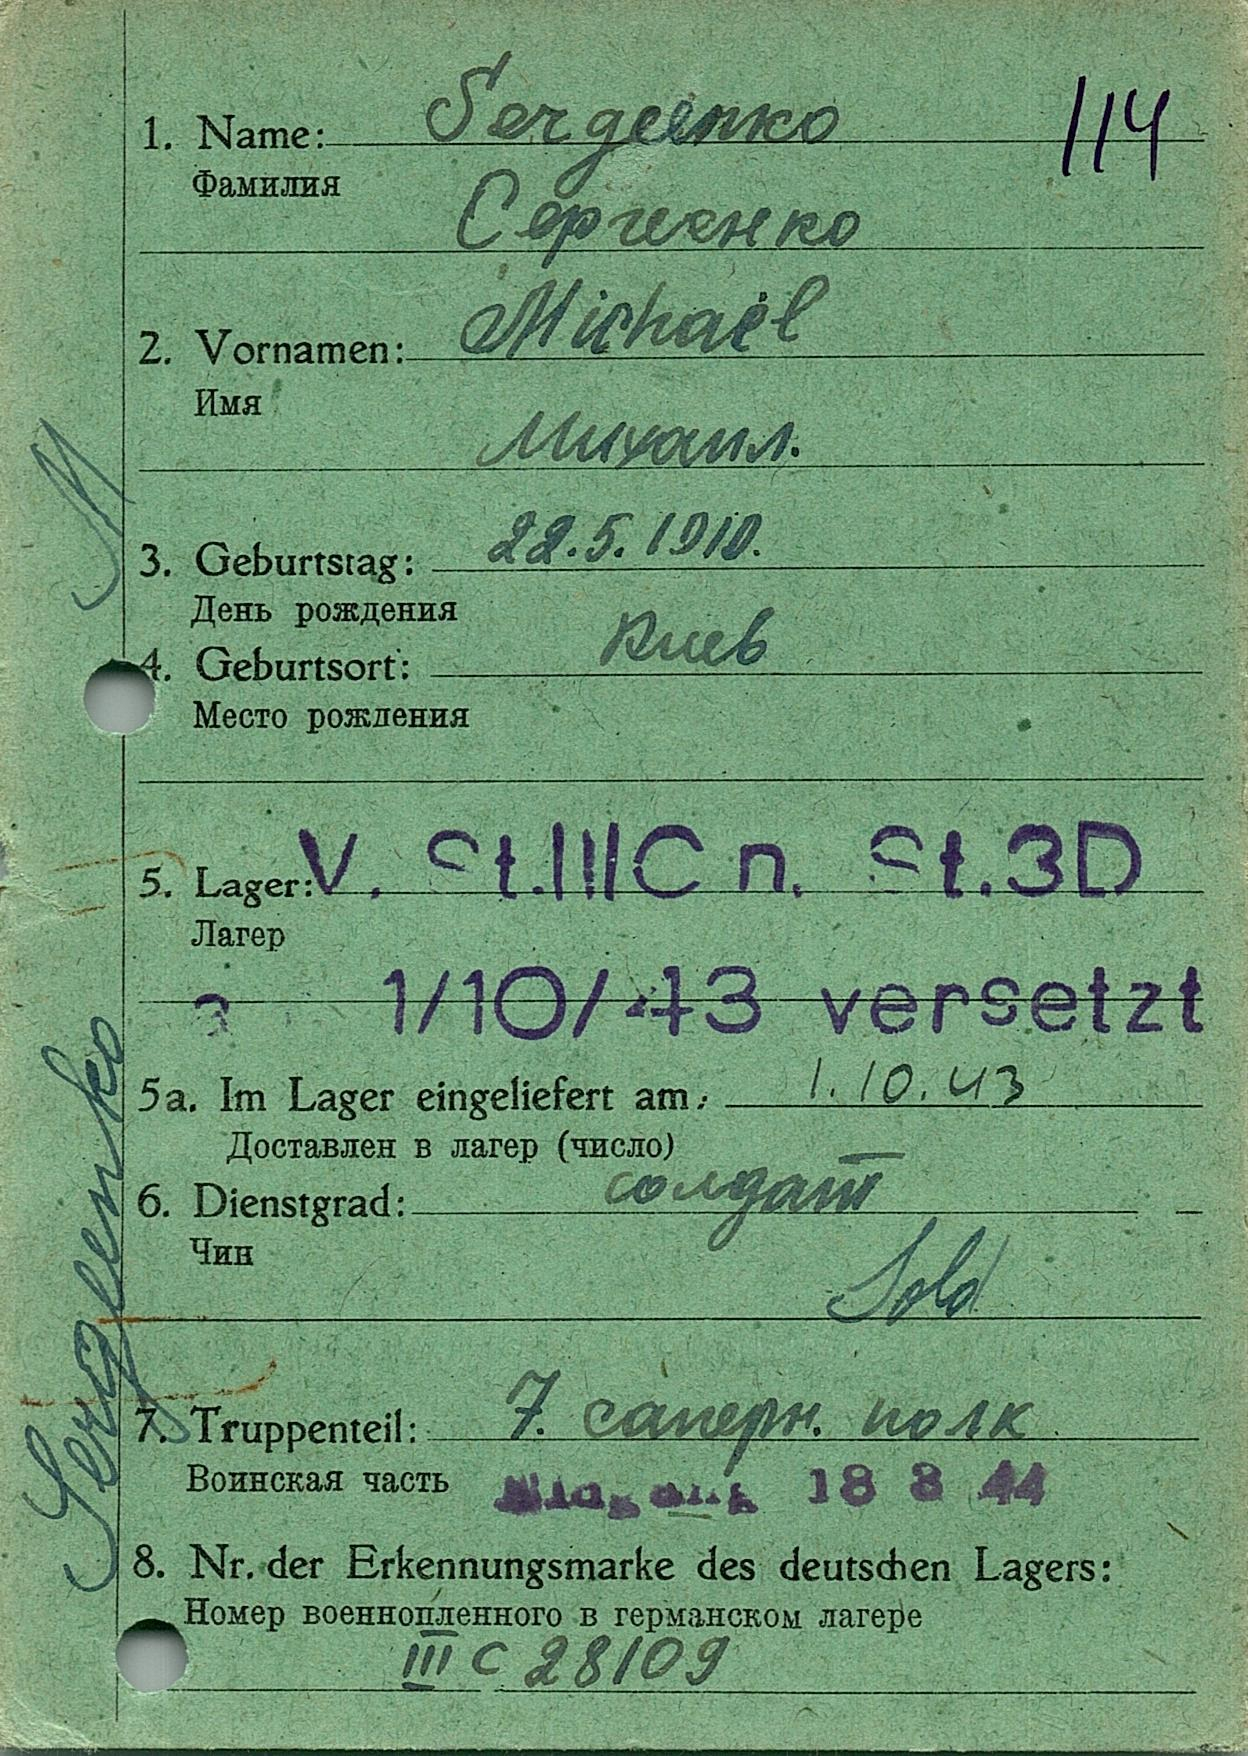 1. Name: Sergeenko 114
Фамилия
Сергеенко
2. Vornamen: Michaël
Имя
Михаил.
3. Geburtstag: 22.5.1910.
День рождения
4. Geburtsort: Киев
Место рождения
5. Lager: V. St.IIIC n. St.3D
Лагер
1/10/43 versetzt
5a. Im Lager eingeliefert am: 1.10.43
Доставлен в лагер (число)
6. Dienstgrad: солдат
Чин
Sold
7. Truppenteil: 7. саперн. полк
Воинская часть 18 8 44
8. Nr. der Erkennungsmarke des deutschen Lagers:
Номер военнопленного в германском лагере
III C 28109
Sergeenko M